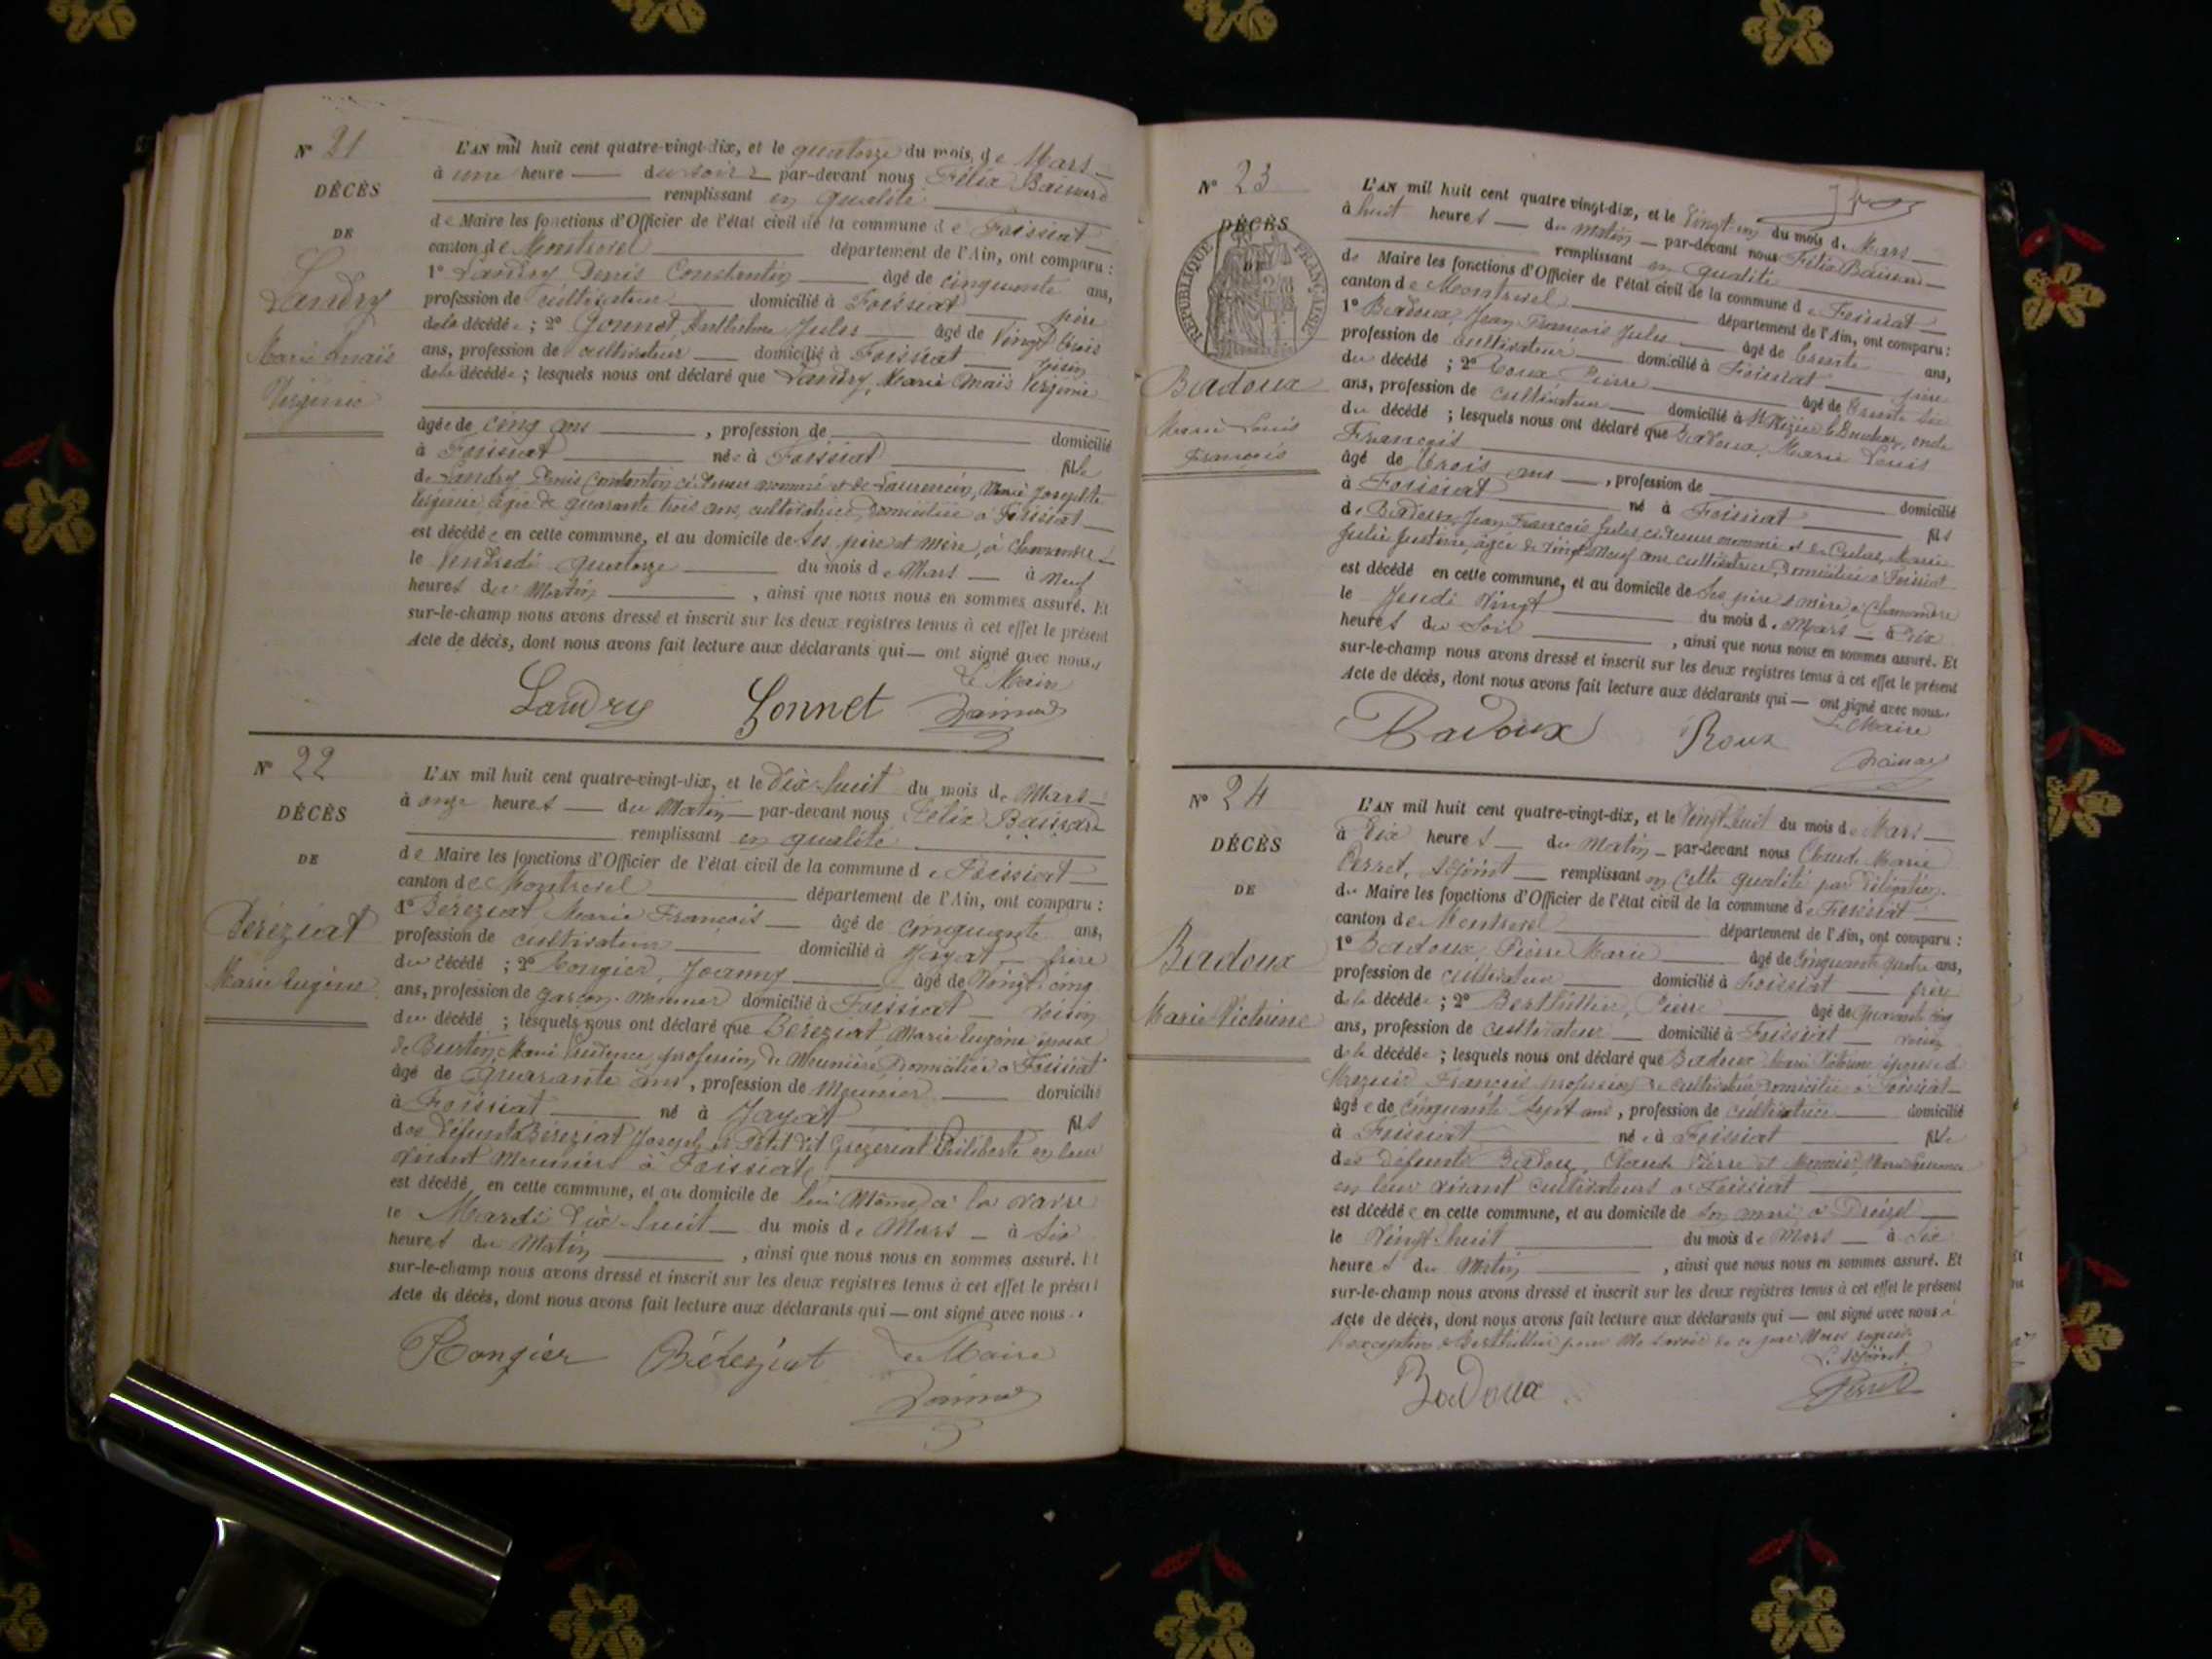 N° 21
DÉCÈS
DE
Landry
Marie Anaïs
Virginie
L'AN mil huit cent quatre-vingt-dix, et le quatorze du mois de Mars
à une heure du soir par-devant nous Félix
remplissant en qualité
de Maire les fonctions d'Officier de l'état civil de la commune de Foissiat
canton de Montrevel département de l'Ain, ont comparu :
1° Landry Denis Constantin âgé de cinquante ans,
profession de cultivateur domicilié à Foissiat père
de la décédée ; 2° Gonnet, Jules âgé de Vingt trois
ans, profession de cultivateur domicilié à Foissiat voisin
de la décédée ; lesquels nous ont déclaré que Landry, Marie Anaïs Virginie
âgée de cinq ans , profession de domicilié
à Foissiat née à Foissiat fille
de Landry Denis Constantin ci-dessus nommé et de Laurencin, Marie Josephte
Virginie, âgée de quarante trois ans, cultivatrice, domiciliée à Foissiat
est décédée en cette commune, et au domicile de ses père et mère, à Chamandre
le Vendredi quatorze du mois de Mars à Neuf
heures du Matin , ainsi que nous nous en sommes assuré. Et
sur-le-champ nous avons dressé et inscrit sur les deux registres tenus à cet effet le présent
Acte de décès, dont nous avons fait lecture aux déclarants qui — ont signé avec nous.
Le Maire
Landry Gonnet
N° 22
DÉCÈS
DE
Béréziat
Marie Eugène
L'AN mil huit cent quatre-vingt-dix, et le Dix-huit du mois de Mars
à onze heures du Matin par-devant nous Félix
remplissant en qualité
de Maire les fonctions d'Officier de l'état civil de la commune de Foissiat
canton de Montrevel département de l'Ain, ont comparu :
1° Béréziat, Marie François âgé de cinquante ans,
profession de cultivateur domicilié à Jayat frère
du décédé ; 2° Rongier, Joanny âgé de Vingt cinq
ans, profession de garçon-Meunier domicilié à Foissiat voisin
du décédé ; lesquels nous ont déclaré que Béréziat Marie Eugène époux
de Burtin, Marie Prudence profession de Meunière, Domiciliée à Foissiat
âgé de Quarante ans , profession de Meunier domicilié
à Foissiat né à Jayat fils
des défunts Béréziat Joseph et Petit dit Philiberte en leur
vivant Meuniers à Foissiat
est décédé en cette commune, et au domicile de lui Même, à la
le Mardi Dix-huit du mois de Mars à six
heures du Matin , ainsi que nous nous en sommes assuré. Et
sur-le-champ nous avons dressé et inscrit sur les deux registres tenus à cet effet le présent
Acte de décès, dont nous avons fait lecture aux déclarants qui — ont signé avec nous.
Rongier Béréziat Le Maire
N° 23
DÉCÈS
DE
RÉPUBLIQUE FRANÇAISE
Badoux
Marie Louis
François
L'AN mil huit cent quatre-vingt-dix, et le Vingt-un du mois de Mars
à huit heures du matin par-devant nous Félix
remplissant en qualité
de Maire les fonctions d'Officier de l'état civil de la commune de Foissiat
canton de Montrevel département de l'Ain, ont comparu :
1° Badoux, Jean François Jules âgé de trente ans,
profession de Cultivateur domicilié à Foissiat père
du décédé ; 2° Roux Pierre âgé de trente six
ans, profession de cultivateur domicilié à oncle
du décédé ; lesquels nous ont déclaré que Badoux, Marie Louis
François
âgé de trois ans , profession de domicilié
à Foissiat né à Foissiat fils
de Badoux, Jean François Jules, ci-dessus nommé et de Marie
Julie Justine, âgée de vingt-neuf ans cultivatrice, domiciliée à Foissiat
est décédé en cette commune, et au domicile de ses père et mère à Chamandre
le Jeudi Vingt du mois de Mars à Dix
heures du Soir , ainsi que nous nous en sommes assuré. Et
sur-le-champ nous avons dressé et inscrit sur les deux registres tenus à cet effet le présent
Acte de décès, dont nous avons fait lecture aux déclarants qui — ont signé avec nous.
Le Maire
Badoux Roux
N° 24
DÉCÈS
DE
Badoux
Marie Victorine
L'AN mil huit cent quatre-vingt-dix, et le Vingt-huit du mois de Mars
à Dix heures du Matin par-devant nous Claude Marie
Perret, adjoint remplissant en cette qualité par délégation
du Maire les fonctions d'Officier de l'état civil de la commune de Foissiat
canton de Montrevel département de l'Ain, ont comparu :
1° Badoux, Pierre Marie âgé de Cinquante quatre ans,
profession de cultivateur domicilié à Foissiat frère
de la décédée ; 2° Berthillier, Pierre âgé de Quarante cinq
ans, profession de cultivateur domicilié à Foissiat voisin
de la décédée ; lesquels nous ont déclaré que Badoux Marie Victorine épouse de
François profession de cultivateur domicilié à Foissiat
âgée de Cinquante Sept ans , profession de cultivatrice domicilié
à Foissiat née à Foissiat fille
des défunts Badoux, Claude Pierre et Marie
en leur vivant cultivateurs à Foissiat
est décédée en cette commune, et au domicile de son mari à
le Vingt-huit du mois de Mars à Six
heures du Matin , ainsi que nous nous en sommes assuré. Et
sur-le-champ nous avons dressé et inscrit sur les deux registres tenus à cet effet le présent
Acte de décès, dont nous avons fait lecture aux déclarants qui — ont signé avec nous à
l'exception de Berthillier pour ne savoir de ce par Nous requis
L'adjoint
Badoux Perret